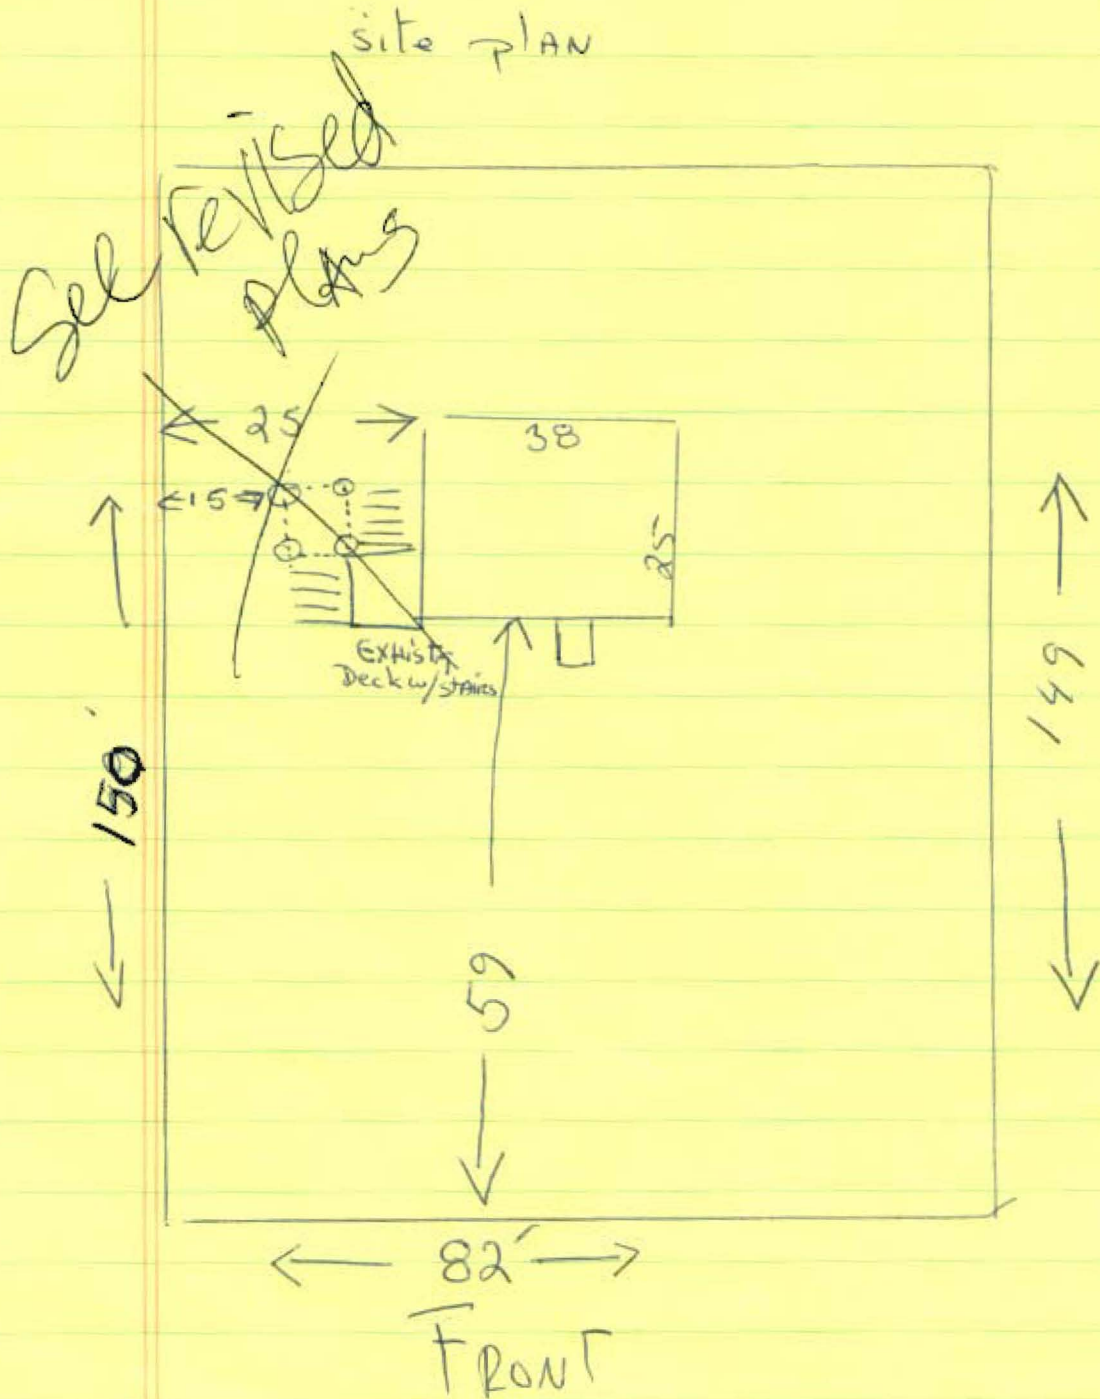 site plAN
See revised
plANs
25
38
←15→
25
Deck w/stAIRs
150'
149
59
82'
FRONT